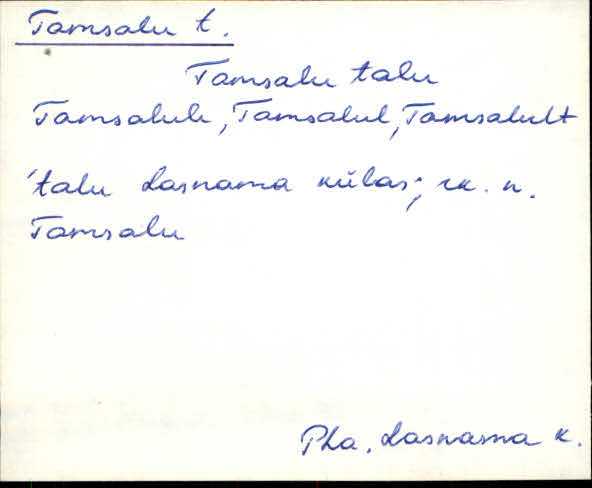 Tamsalu t.
Tamsalu talu
Tamsalule, Tamsalul, Tamsalult
'talu Lasnama külas; rk. n.
Tamsalu
Pha. Lasnama k.